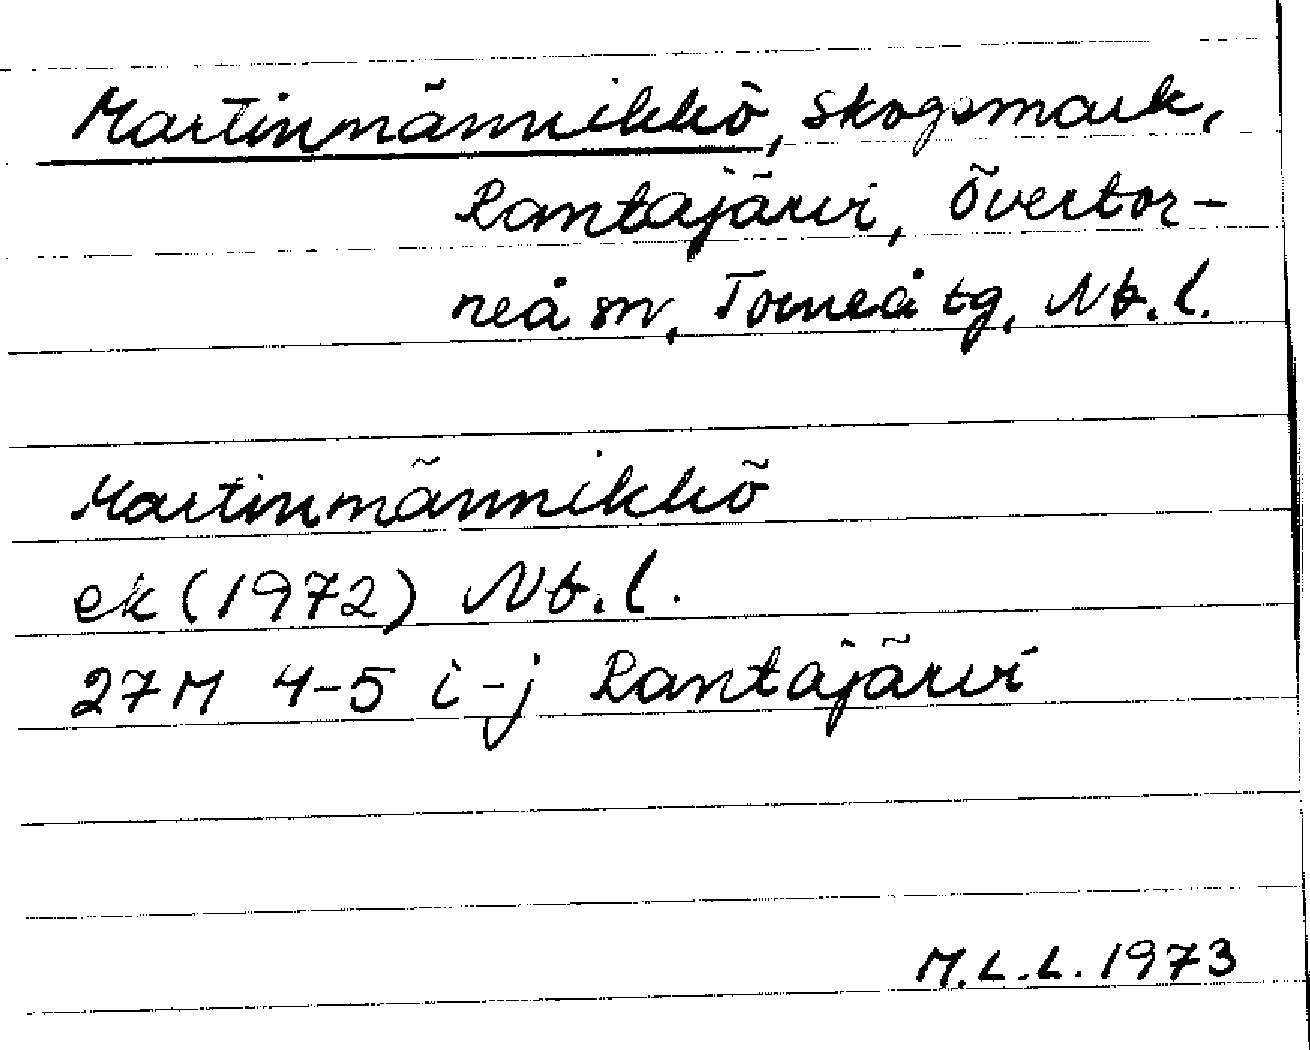 Martinmännikkö, skogsmark,
Rantajärvi, Övertor-
neå sn, Torneå tg, Nb.l.
Martinmännikkö
ek (1972) Nb.l.
27M 4-5 i-j Rantajärvi
M.L.L. 1973